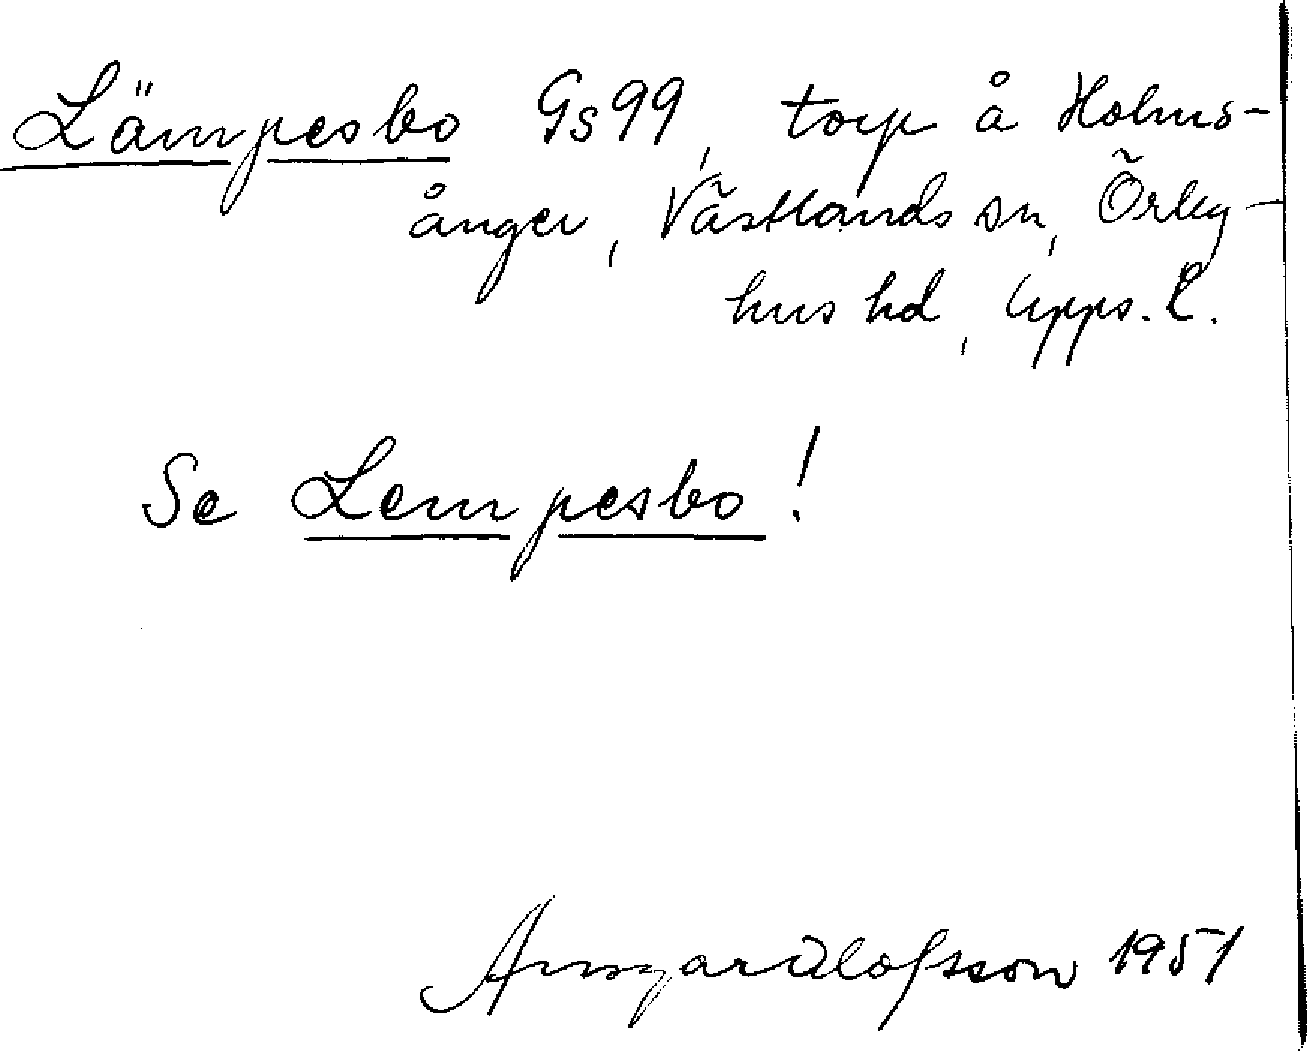 Lämpesbo Gs 99, torp å Holms-
ånger, Västlands sn, Örby-
hus hd, Upps. l.
Se Lempesbo!
Ansgar Olofsson 1951